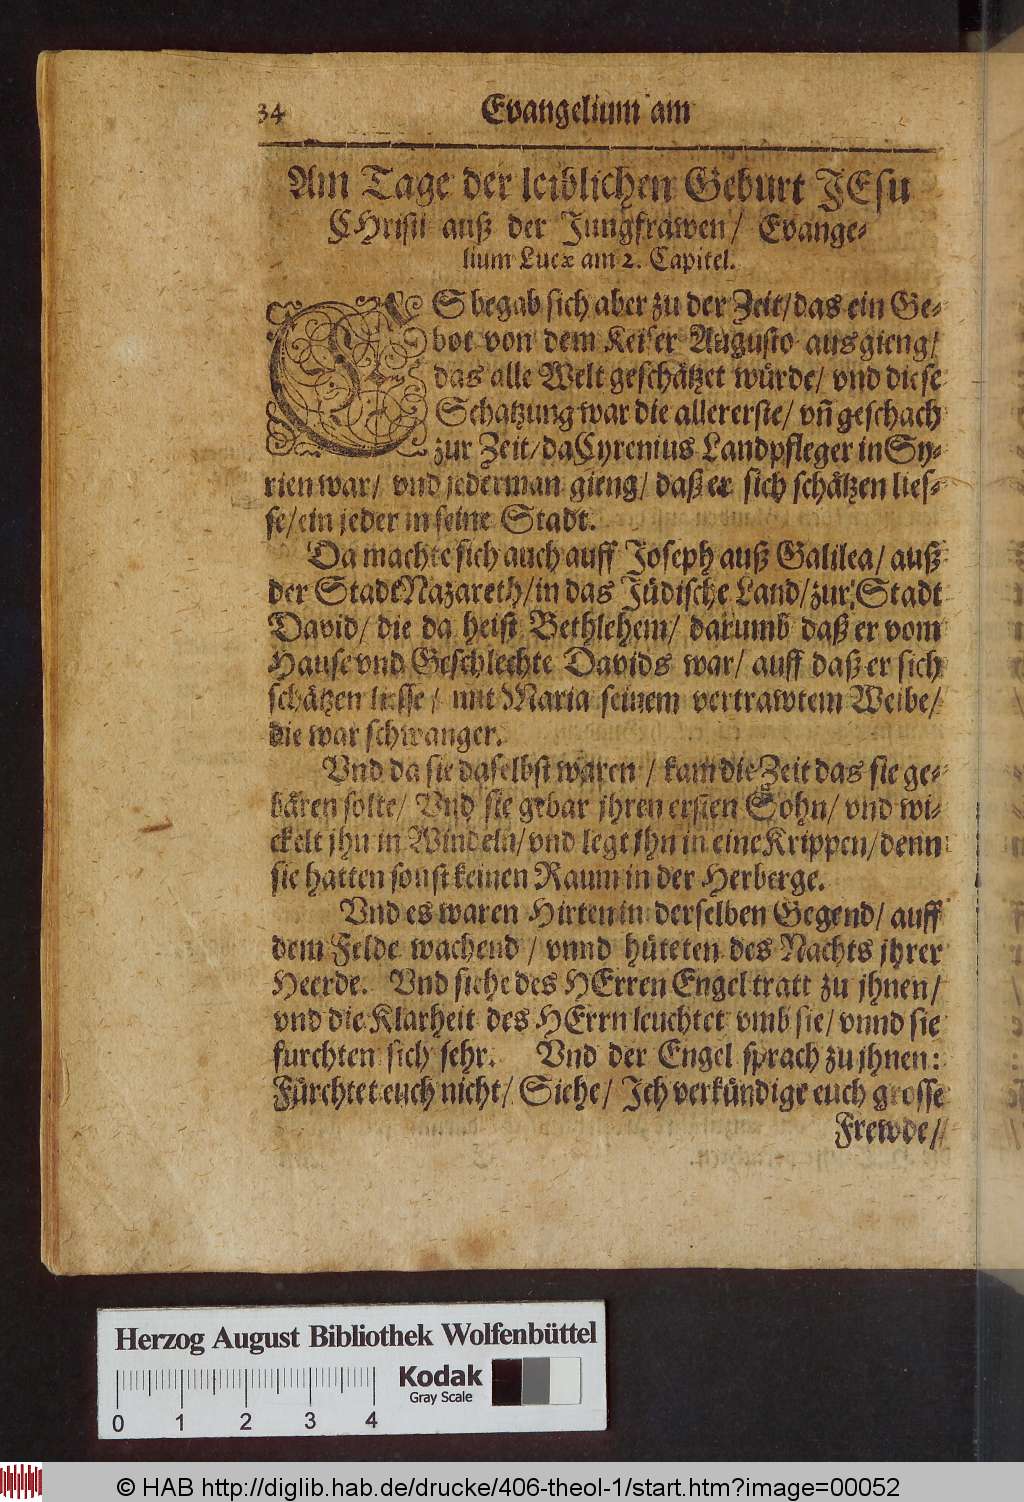 34 Evangelium am
Am Tage der leiblichen Geburt JEsu
CHristi auß der Jungfrawen/ Evange-
lium Lucæ am 2. Capitel.
ES begab sich aber zu der Zeit/das ein Ge-
bot von dem Keiser Augusto ausgieng/
das alle Welt geschätzet würde/ vnd diese
Schatzung war die allererste/ vñ geschach
zur Zeit/da Cyrenius Landpfleger in Sy-
rien war/ vnd jederman gieng/ daß er sich schätzen lies-
se/ein jeder in seine Stadt.
Da machte sich auch auff Joseph auß Galilea/ auß
der Stadt Nazareth/in das Jüdische Land/zur Stadt
David/ die da heist Bethlehem/ darumb daß er vom
Hause vnd Geschlechte Davids war/ auff daß er sich
schätzen liesse/ mit Maria seinem vertrawtem Weibe/
die war schwanger.
Vnd da sie daselbst waren/ kam die Zeit das sie ge-
bären solte/ Vnd sie gebar jhren ersten Sohn/ vnd wi-
ckelt jhn in Windeln/vnd legt Ihn in eine Krippen/denn
sie hatten sonst keinen Raum in der Herberge.
Vnd es waren Hirten in derselben Gegend/ auff
dem Felde wachend/ vnnd hüteten des Nachts jhrer
Heerde. Vnd siehe des HErren Engel tratt zu jhnen/
vnd die Klarheit des HErrn leuchtet vmb sie/ vnnd sie
furchten sich sehr. Vnd der Engel sprach zu jhnen:
Fürchtet euch nicht/ Siehe/ Ich verkündige euch grosse
Frewde/
Herzog August Bibliothek Wolfenbüttel
Kodak
Gray Scale
0 1 2 3 4
© HAB http://diglib.hab.de/drucke/406-theol-1/start.htm?image=00052